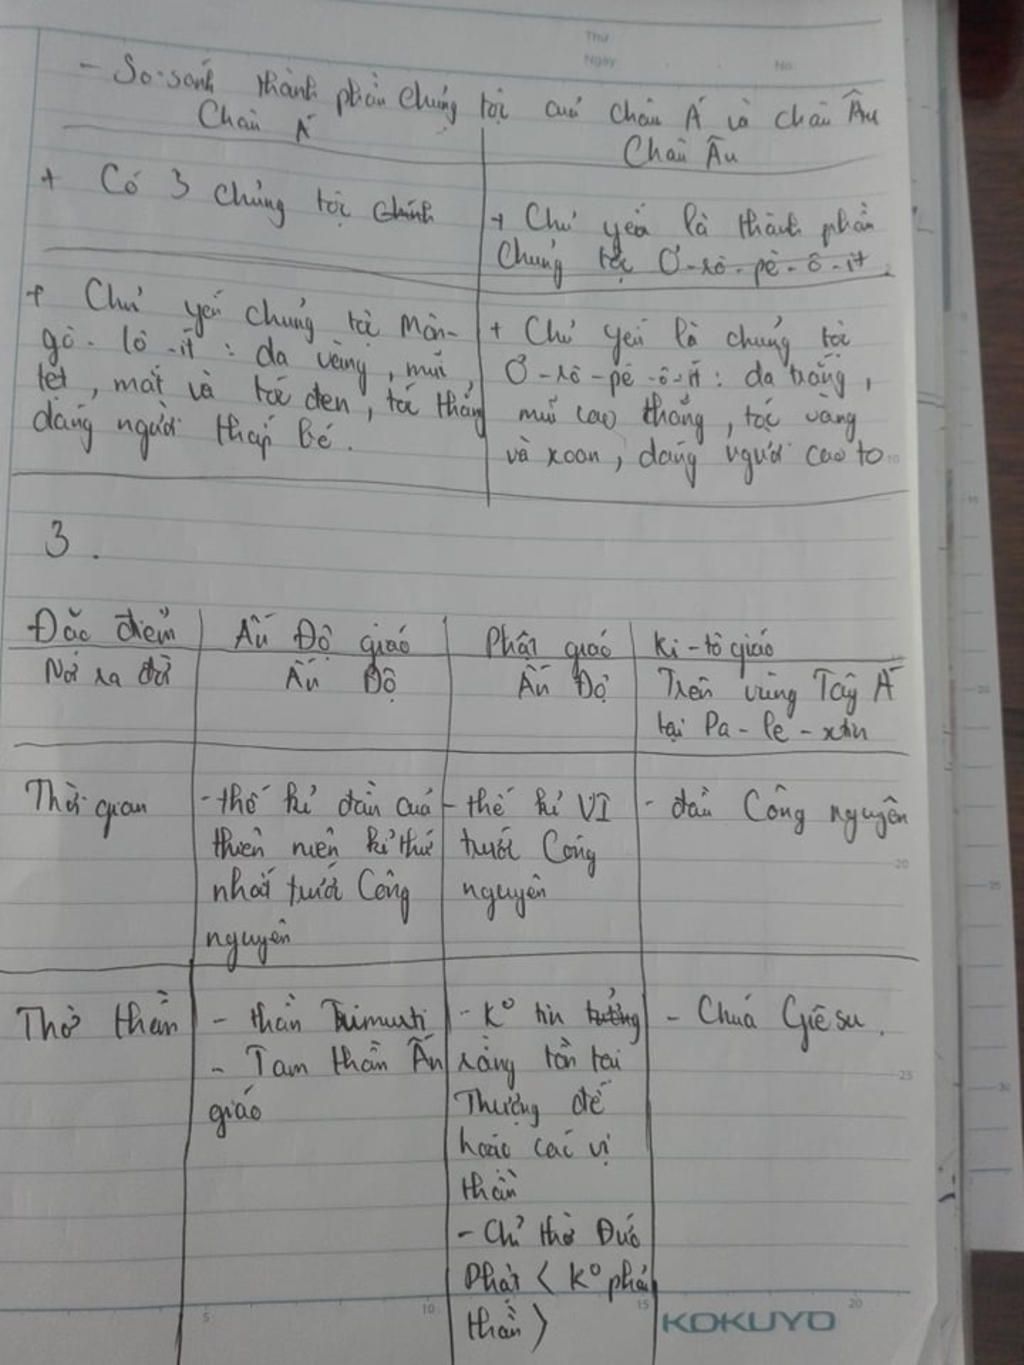 Thứ
Ngày
No.
- So sánh thành phần chủng tộc của châu Á và châu Âu
Châu Á
Châu Âu
+ Có 3 chủng tộc chính
+ Chủ yếu là thành phần
chủng tộc Ơ-rô-pê-ô-ít.
+ Chủ yếu chủng tộc Môn-
gô-lô-ít: da vàng, mũi
tẹt, mắt và tóc đen, tóc thẳng
dáng người thấp bé.
+ Chủ yếu là chủng tộc
Ơ-rô-pê-ô-ít: da trắng,
mũi cao thẳng, tóc vàng
và xoăn, dáng người cao to
3.
Đặc điểm
Ấn Độ giáo
Phật giáo
Ki-tô giáo
Nơi ra đời
Ấn Độ
Ấn Độ
Trên vùng Tây Á
tại Pa-le-xtin
Thời gian
- thế kỉ đầu của
thiên niên kỉ thứ
nhất trước Công
nguyên
- thế kỉ VI
trước Công
nguyên
- đầu Công nguyên
Thờ thần
- thần Trimurti
- Tam thần Ấn
giáo
- K° tin tưởng
rằng tồn tại
Thượng đế
hoặc các vị
thần
- Chỉ thờ Đức
Phật < K° phải
thần >
- Chúa Giêsu.
5
10
15
20
KOKUYO